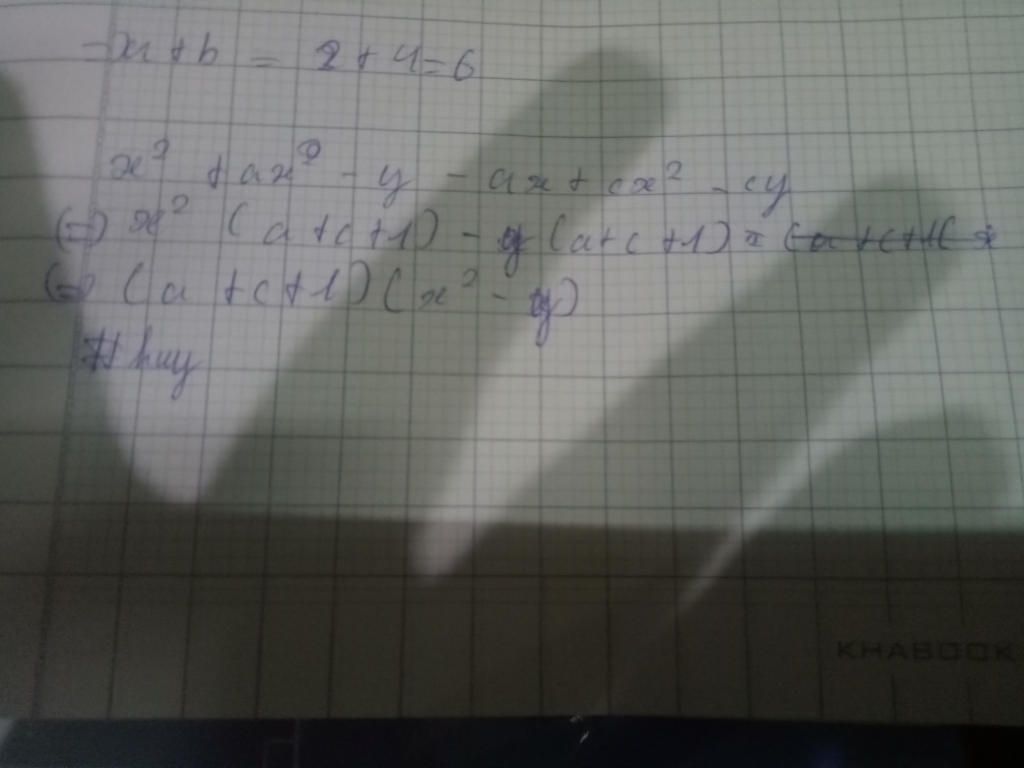 => a + b = 2 + 4 = 6
x² + ax² - y - ax + cx² - cy
(=) x² (a + c + 1) - y (a + c + 1)
(=) (a + c + 1) (x² - y)
# huy
KHABOOK